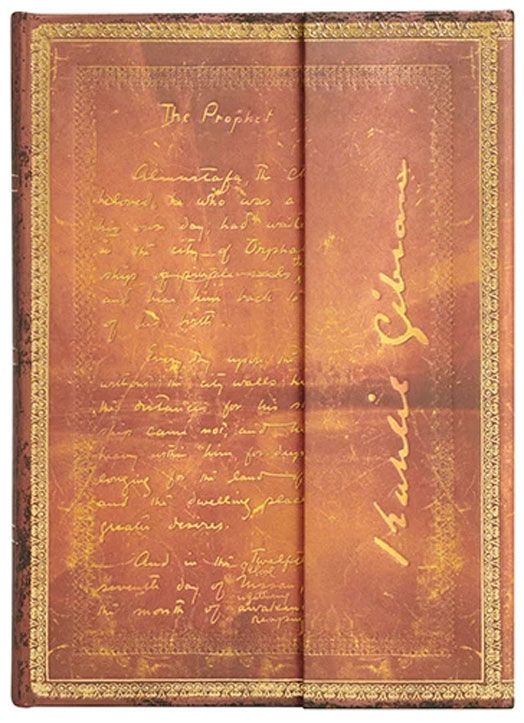 The Prophet
Almustafa, the Ch
beloved, he who was a
his own day, had waite
in the city of Orphal
ship of purple seals,
and bear him back to
of his birth.
Every day upon the
without the city walls he
the distances for his s
ships came not, and his
heavy within him, for deep
longing for the land of
and the dwelling place
greater desires.
And in the twelfth
seventh day of
the month of awaken
Kahlil Gibran